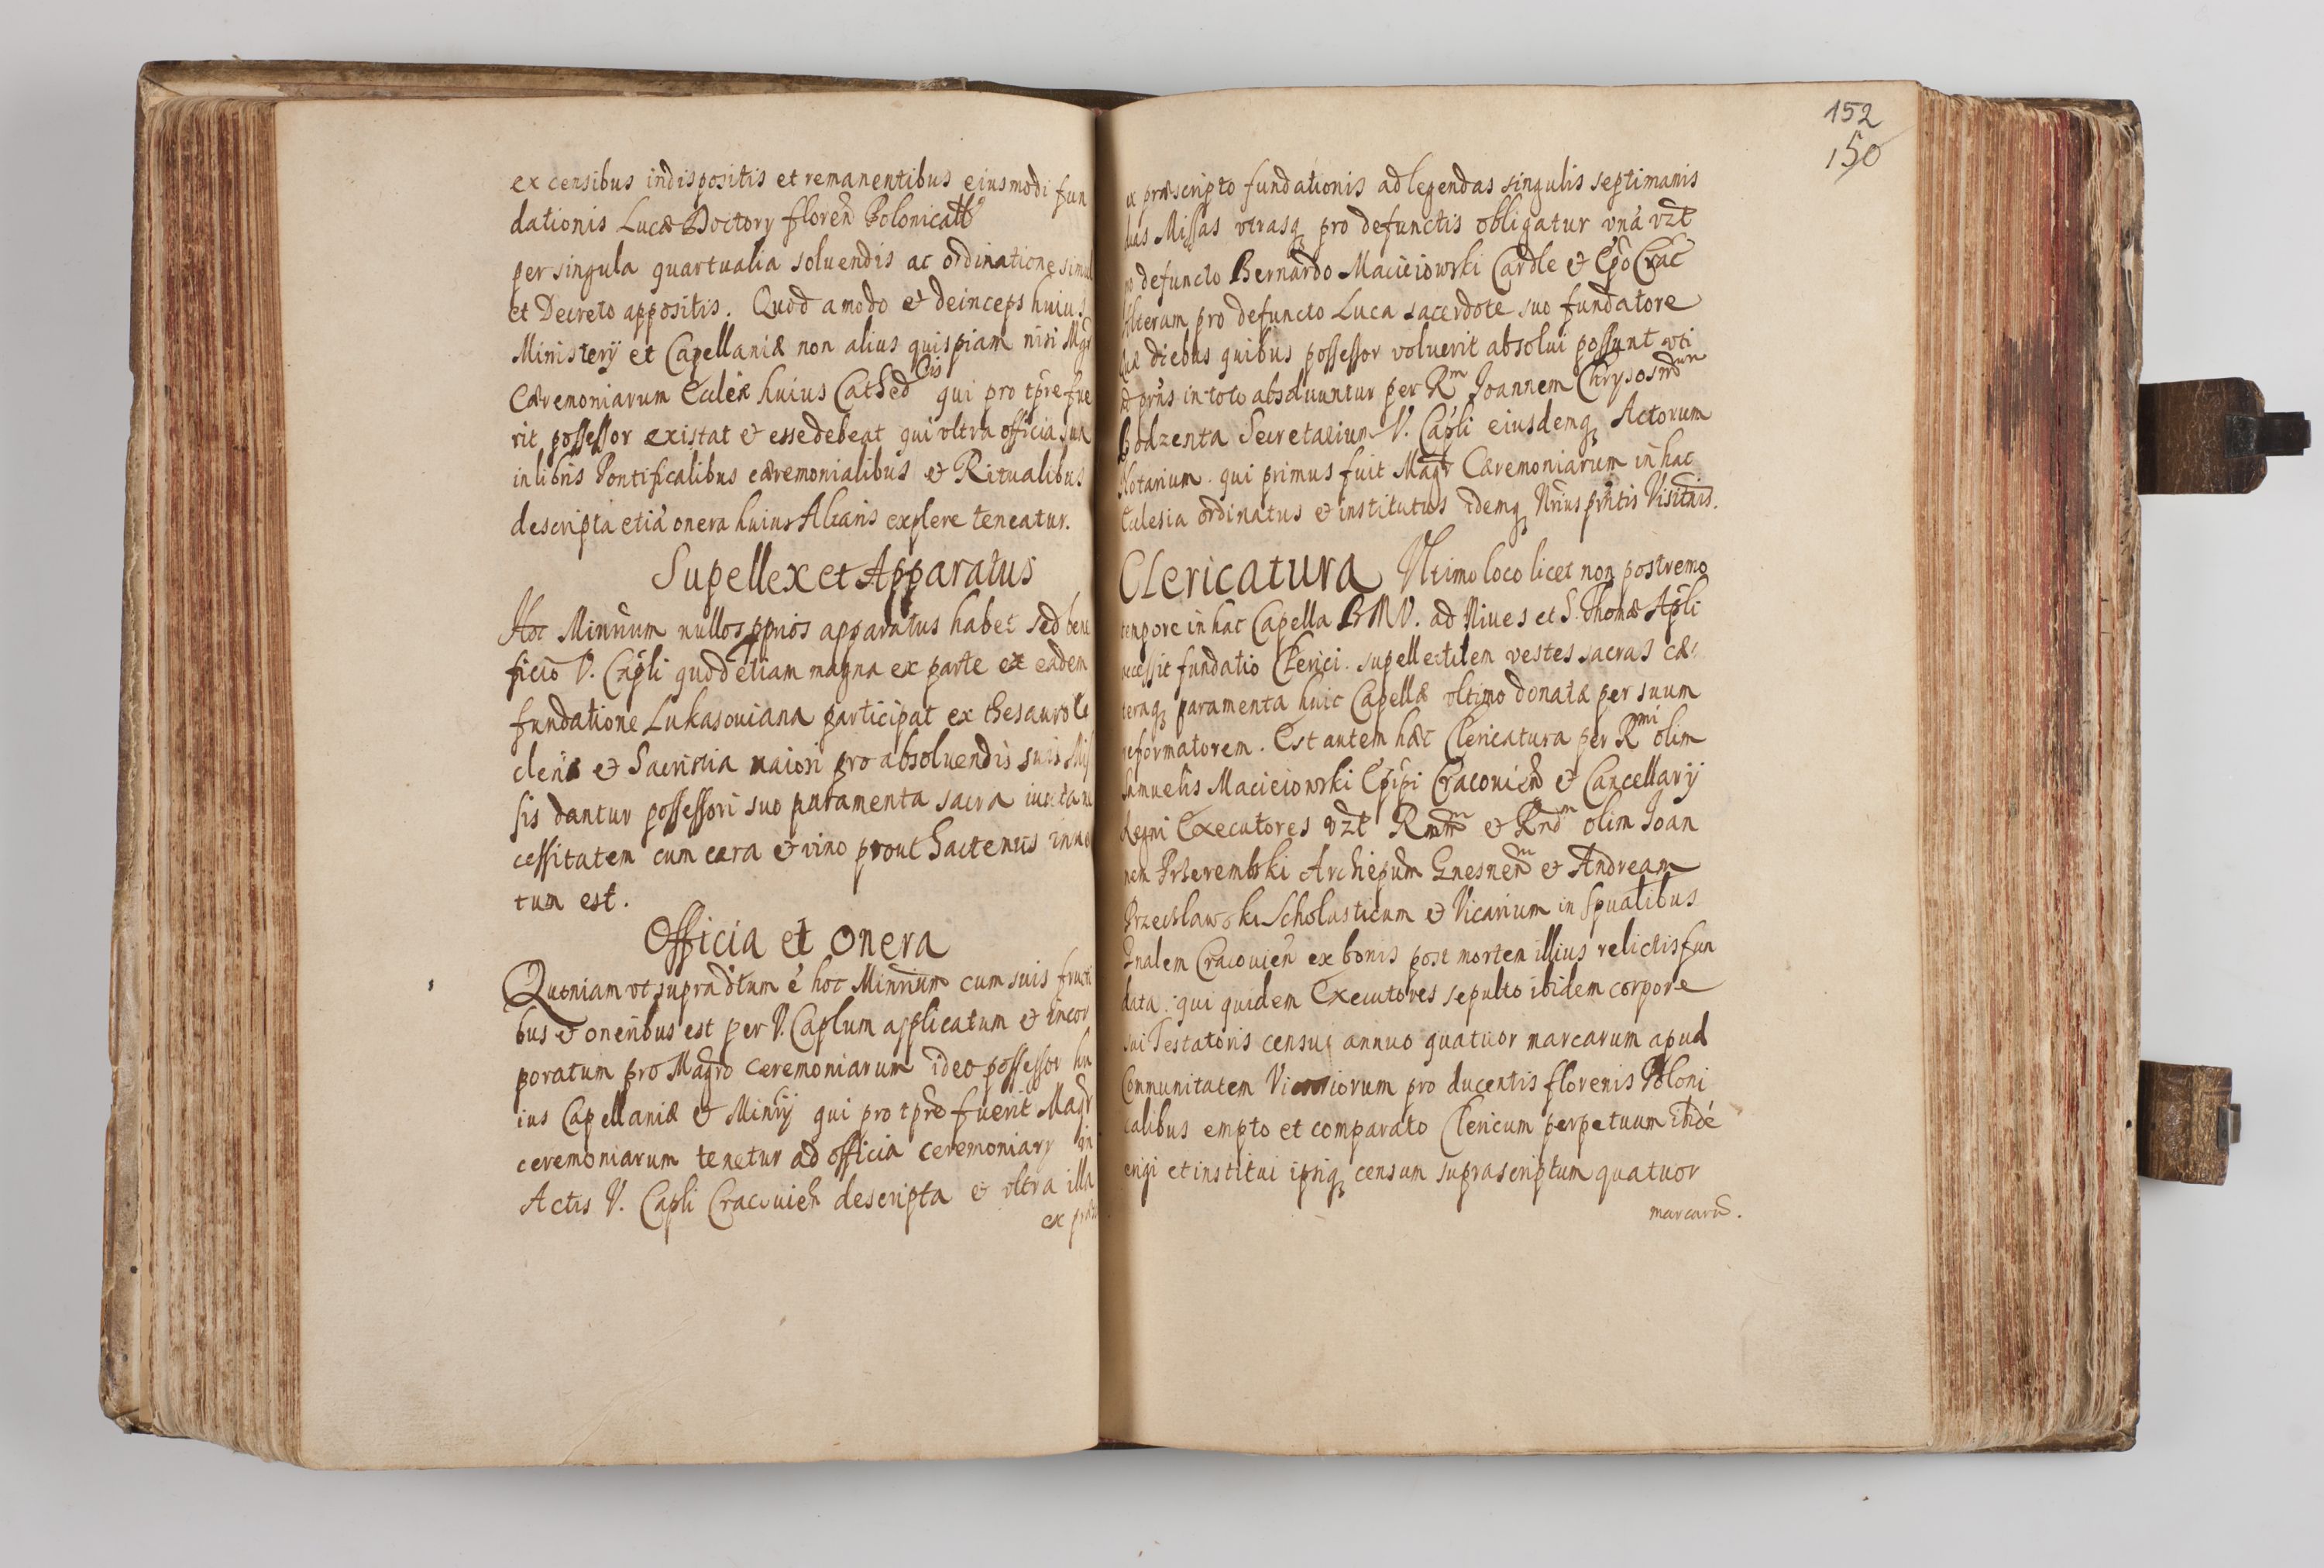 ex censibus indispositis et remanentibus eiusmodi fun
dationis Lucæ Doctory floreñ Polonicalb
per singula quartualia soluendis ac ordinatione simul
et Decreto appositis. Quod amodo et deinceps huius
Ministerij et Capellaniæ non alius quispiam nisi Mgr
Cæremoniarum Eccleæ huius Cathed Cis qui pro tpre fue
rit possessor existat et esse debeat qui vltra officia sua
in libris Pontificalibus cæremonialibus et Ritualibus
descripta etiã onera huius Altaris explere teneatur.
Supellex et Apparatus
Hoc Minrium nullos pprios apparatus habet sed bene
ficio V. Capli quod etiam magna ex parte ex eadem
fundatione Lukasouiana participat ex thesauro Ec
cleiæ et Sacristia maiori pro absoluendis suis Mis
sis dantur possessori suo paramenta sacra iuxta ne
cessitatem cum cera et vino prout hactenus
tum est.
Officia et onera
Quoniam vt supradtum é hoc Minrium cum suis fructi
bus et oneribus est per V. Caplum applicatum et incor
poratum pro Magro ceremoniarum ideo possessor hu
ius Capellaniæ et Minrij qui pro tpre fuerit Magr
ceremoniarum tenetur ad officia ceremoniary in
Actis V. Capli Cracouień descripta et vltra illa
ex præs
152
150
ex præscripto fundationis ad legendas singulis septimanis
duas Missas vtrasq pro defunctis obligatur vna vzt
pro defuncto Bernardo Macieiowski Cardle et Epo Crac
Alteram pro defuncto Luca sacerdote suo fundatore
Quæ diebus quibus possessor voluerit absolui possunt vti
et prius in toto absoluuntur per Rm Joannem Chrysosmum
Bodzenta Secretarium V. Capli eiusdemq Actorum
Notarium. qui primus fuit Magr Cæremoniarum in hac
Eclesia ordinatus et institutus idemq Nrius prntis Visitnis.
Clericatura Vltimo loco licet non postremo
tempore in hac Capella BMV. ad Niues et S. Thomæ Apli
accessit fundatio Clerici. supellectilem vestes sacras cæ:
teraq paramenta huic Capellæ vltimo donata per suum
reformatorem. Est autem hæc Clericatura per Rmi olim
Samuelis Macieiowski Epipi Cracouień et Cancellarij
Regni Executores vzt Rmm et Rndm olim Joan
nem Przerembski Archiepum Gnesneńm et Andream
Przeclawski Scholasticum et Vicarium in Spualibus
Gnalem Cracouień ex bonis post mortem illius relictis fun
data: qui quidem Executores sepulto ibidem corpore
sui Testatoris censu annuo quatuor marcarum apud
Communitatem Vicariorum pro ducentis florenis Poloni
calibus empto et comparato Clericum perpetuum ibidé
erigi et institui ipsiq censum suprascriptum quatuor
marcarū.